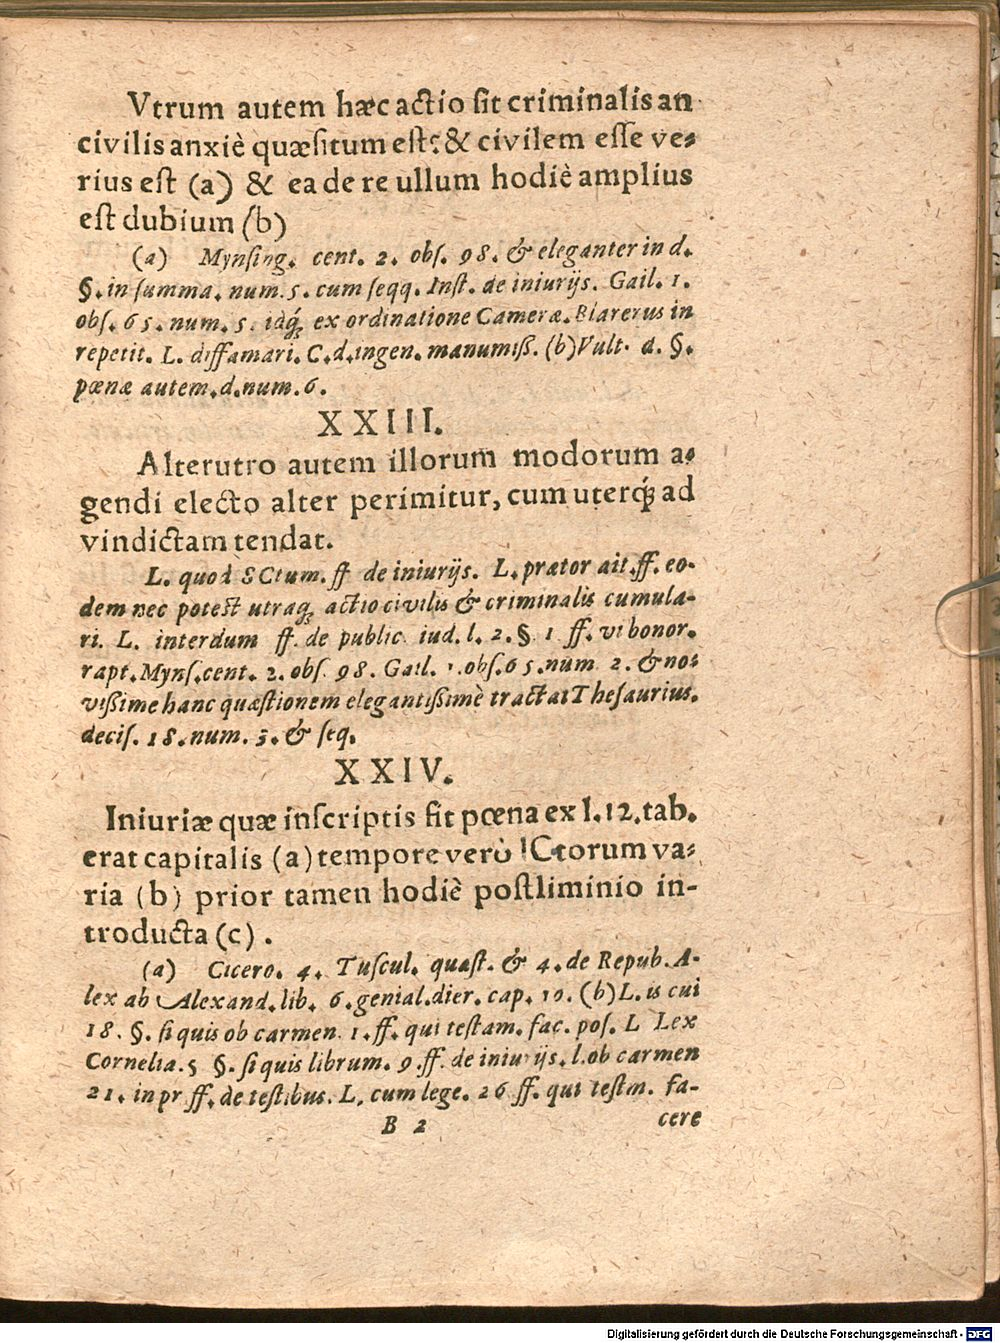 Vtrum autem hæc actio ſit criminalis an
civilis anxiè quæſitum eſt: & civilem eſſe ve-
rius eſt (a) & ea de re ullum hodiè amplius
eſt dubium (b)
(a) Mynſing. cent. 2. obſ. 98. & eleganter in d.
§. in ſumma. num. 5. cum ſeqq. Inſt. de iniurijs. Gail. 1.
obſ. 65. num. 5. idq́; ex ordinatione Cameræ. Blarerus in
repetit. L. diffamari. C. d. ingen. manumiß. (b) Vult. d. §.
pœnæ autem. d. num. 6.
XXIII.
Alterutro autem illorum modorum a-
gendi electo alter perimitur, cum uterq́; ad
vindictam tendat.
L. quod SCtum. ff de iniurijs. L. prætor ait. ff. eo-
dem nec poteſt utraq; actio civilis & criminalis cumula-
ri. L. interdum ff. de public. iud. l. 2. §. 1 ff. vi bonor.
rapt. Mynſ. cent. 2. obſ. 98. Gail. 1. obſ. 65. num. 2. & no-
vißime hanc quæſtionem elegantißimè tractat Theſaurius.
deciſ. 18. num. 3. & ſeq.
XXIV.
Iniuriæ quæ inſcriptis fit pœna ex l. 12. tab.
erat capitalis (a) tempore verò ICtorum va-
ria (b) prior tamen hodiè poſtliminio in-
troducta (c).
(a) Cicero. 4. Tuſcul. quæſt. & 4. de Repub. A-
lex ab Alexand. lib. 6. genial. dier. cap. 10. (b) L. is cui
18. §. ſi quis ob carmen. 1. ff. qui teſtam. fac. poſ. L Lex
Cornelia. 5 §. ſi quis librum. 9. ff. de iniurijs. l. ob carmen
21. in pr ff. de teſtibus. L. cum lege. 26 ff. qui teſtm. fa-
B 2 cere
Digitalisierung gefördert durch die Deutsche Forschungsgemeinschaft - DFG